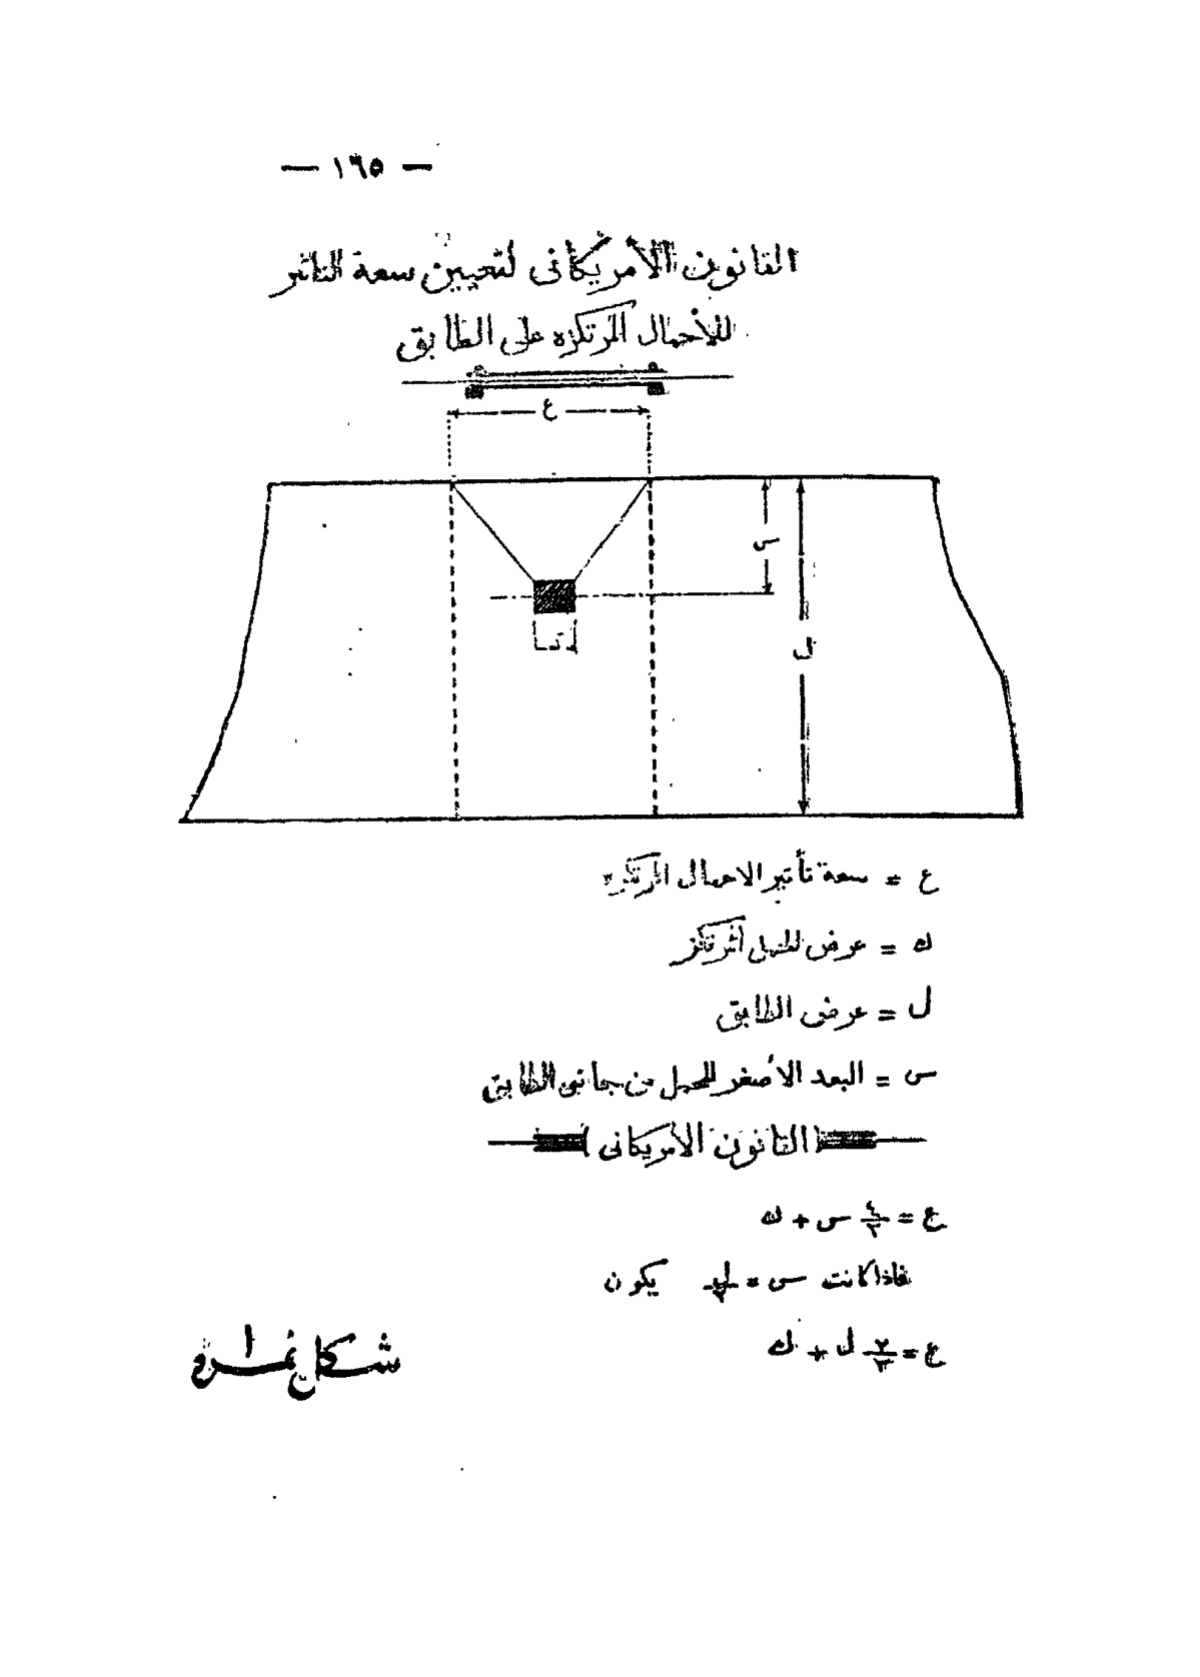 — ١٦٥ —
القانون الأمريكانى لتعيين سعة التاثير
للأحمال المرتكزه على الطابق
ع
س
ل
ك
ع = سعة تأثير الاحمال المرتكزه
ك = عرض الحمل المرتكز
ل = عرض الطابق
س = البعد الأصغر للحمل من جانبى الطابق
(القانون الأمريكانى)
ع = ٤/٣ س + ك
فاذا كانت س = ل/٢ يكون
ع = ٢/٣ ل + ك
شكل نمره ١